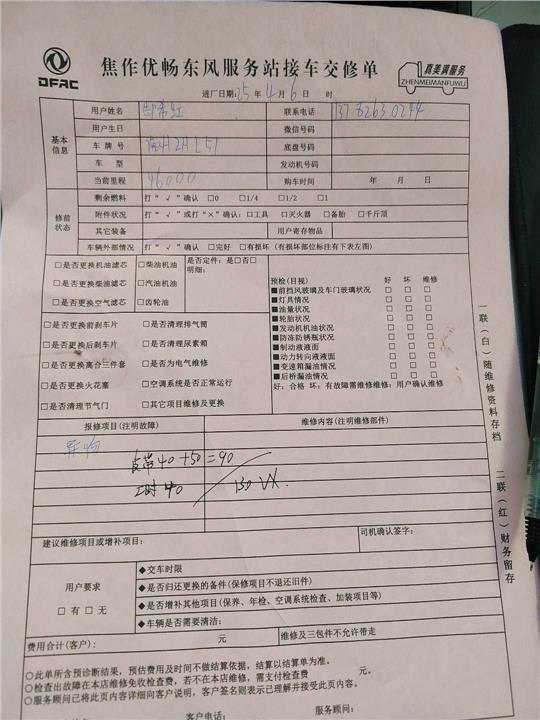 DFAC
焦作优畅东风服务站接车交修单
真美满服务
ZHENMEIMANFUWU
进厂日期:25年4月6日 时
基本信息
用户姓名 联系电话
用户生日 微信号码
车牌号 底盘号码
车型 发动机号码
当前里程 46000 购车时间 年 月 日
修前状态
剩余燃料 打“√”确认 □0 □1/4 □1/2 □1
附件状况 打“√”或打“×”确认:□工具 □灭火器 □备胎 □千斤顶
其它装备 用户寄存物品
车辆外部情况 打“√”确认 □完好 □有损坏(有损坏部位标注有下表左图)
□是否更换机油滤芯 □柴油机油 是否定件:是□否□
明细:
□是否更换柴油滤芯 □汽油机油
□是否更换空气滤芯 □齿轮油
□是否更换前刹车片 □是否清理排气筒
□是否更换后刹车片 □是否清理尿素箱
□是否更换离合三件套 □是否为电气维修
□是否更换火花塞 □空调系统是否正常运行
□是否清理节气门 □其它项目维修及更换
预检(目视) 好 坏 维修
■前挡风玻璃及车门玻璃状况 □ □ □
■灯具情况 □ □ □
■油量状况 □ □ □
■轮胎状况 □ □ □
■发动机机油状况 □ □ □
■防冻防锈瓶状况 □ □ □
■制动液液面 □ □ □
■动力转向液液面 □ □ □
■变速箱漏油情况 □ □ □
■后桥漏油情况 □ □ □
好:合格 坏:有故障需维修维修:用户确认维修
报修项目(注明故障) 维修内容(注明维修部件)
异响
皮带40+50=90
工时40 130 VX.
建议维修项目或增补项目: 司机确认签字:
用户要求
□有□无
◆交车时限
◆是否归还更换的备件(保修项目不退还旧件)
◆是否增补其他项目(保养、年检、空调系统检查、加装项目等)
◆车辆是否需要清洁:
费用合计(客户): 元 维修及三包件不允许带走
○此单所含预诊断结果,预估费用及时间不做结算依据,结算以结算单为准。
○检查出故障在本店维修免收检查费,若不在本店维修,需支付检查费 元。
○服务顾问已将此页内容详细向客户说明,客户签名则表示已理解并接受此页内容。
客户电话: 服务顾问:
一联(白)随维修资料存档
二联(红)财务留存